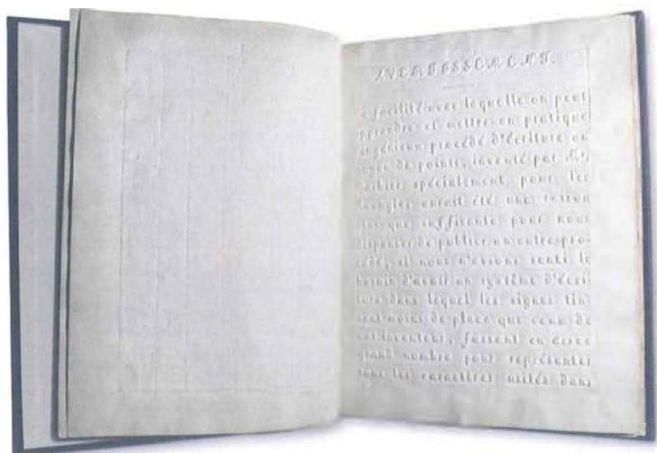 AVERTISSEMENT.
facilité avec laquelle on peut
apprendre et mettre en pratique
ingénieux procédé d'écriture au
moyen de points, inventé par Mr.
Barbier spécialement pour les
aveugles aurait été une raison
plus que suffisante pour nous
dispenser de publier un autre pro-
cédé, si nous n'avions senti le
besoin d'avoir un système d'écri-
ture dans lequel les signes tin-
sent moins de place que ceux de
cet inventeur, fussent en assez
grand nombre pour représenter
tous les caractères usités dans